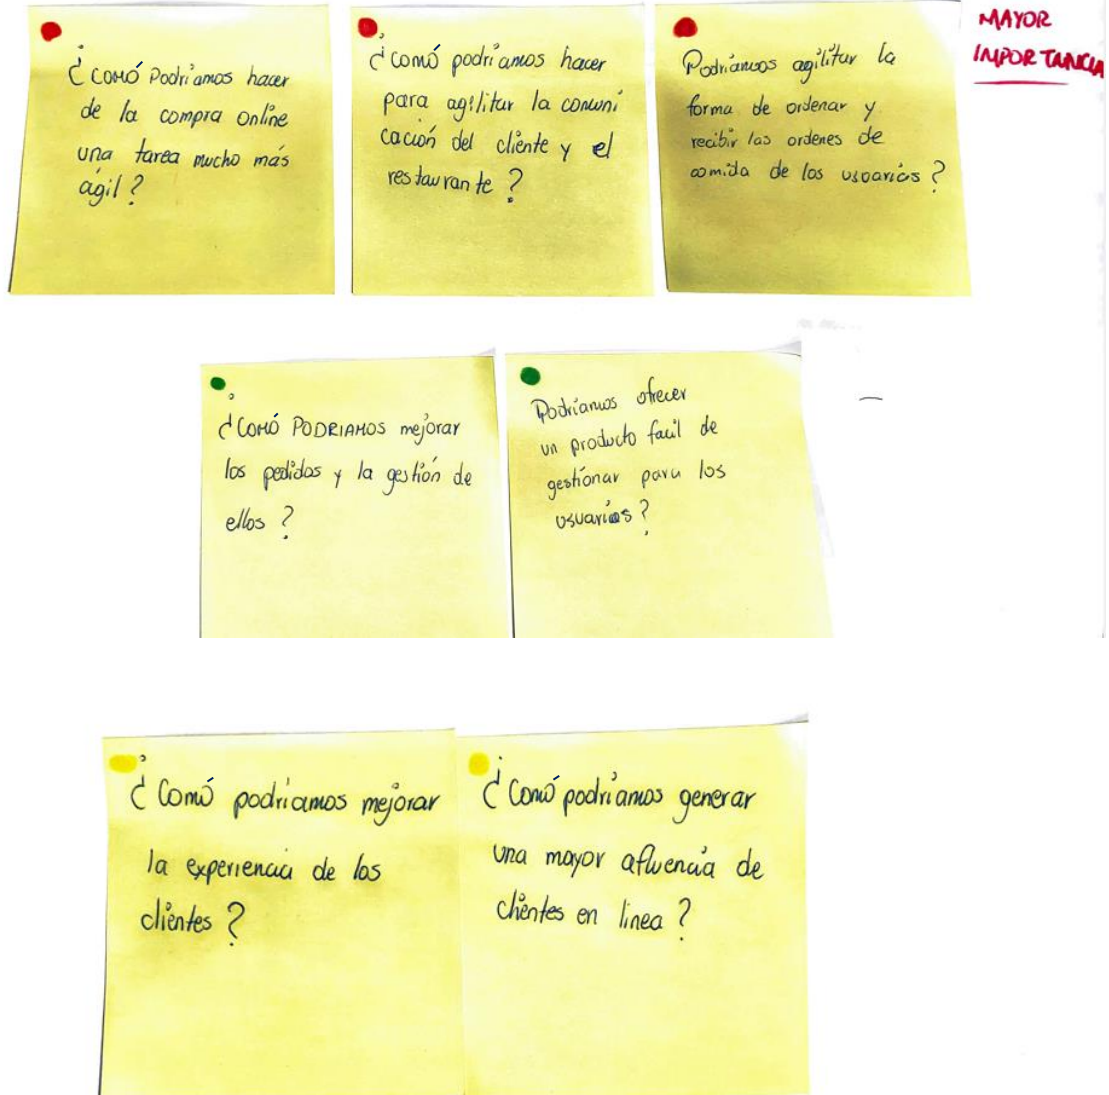 ¿Comó Podriamos hacer
de la compra online
una tarea mucho más
ágil?
¿comó podriamos hacer
para agilitar la comuni
cación del cliente y el
restaurante?
Podriamos agilitar la
forma de ordenar y
recibir las ordenes de
comida de los usuarios?
MAYOR
IMPORTANCIA
¿COMÓ PODRIAMOS mejorar
los pedidos y la gestión de
ellos?
Podriamos ofrecer
un producto facil de
gestionar para los
usuarios?
¿Comó podriamos mejorar
la experiencia de los
clientes?
¿Comó podriamos generar
una mayor afluencia de
clientes en linea?